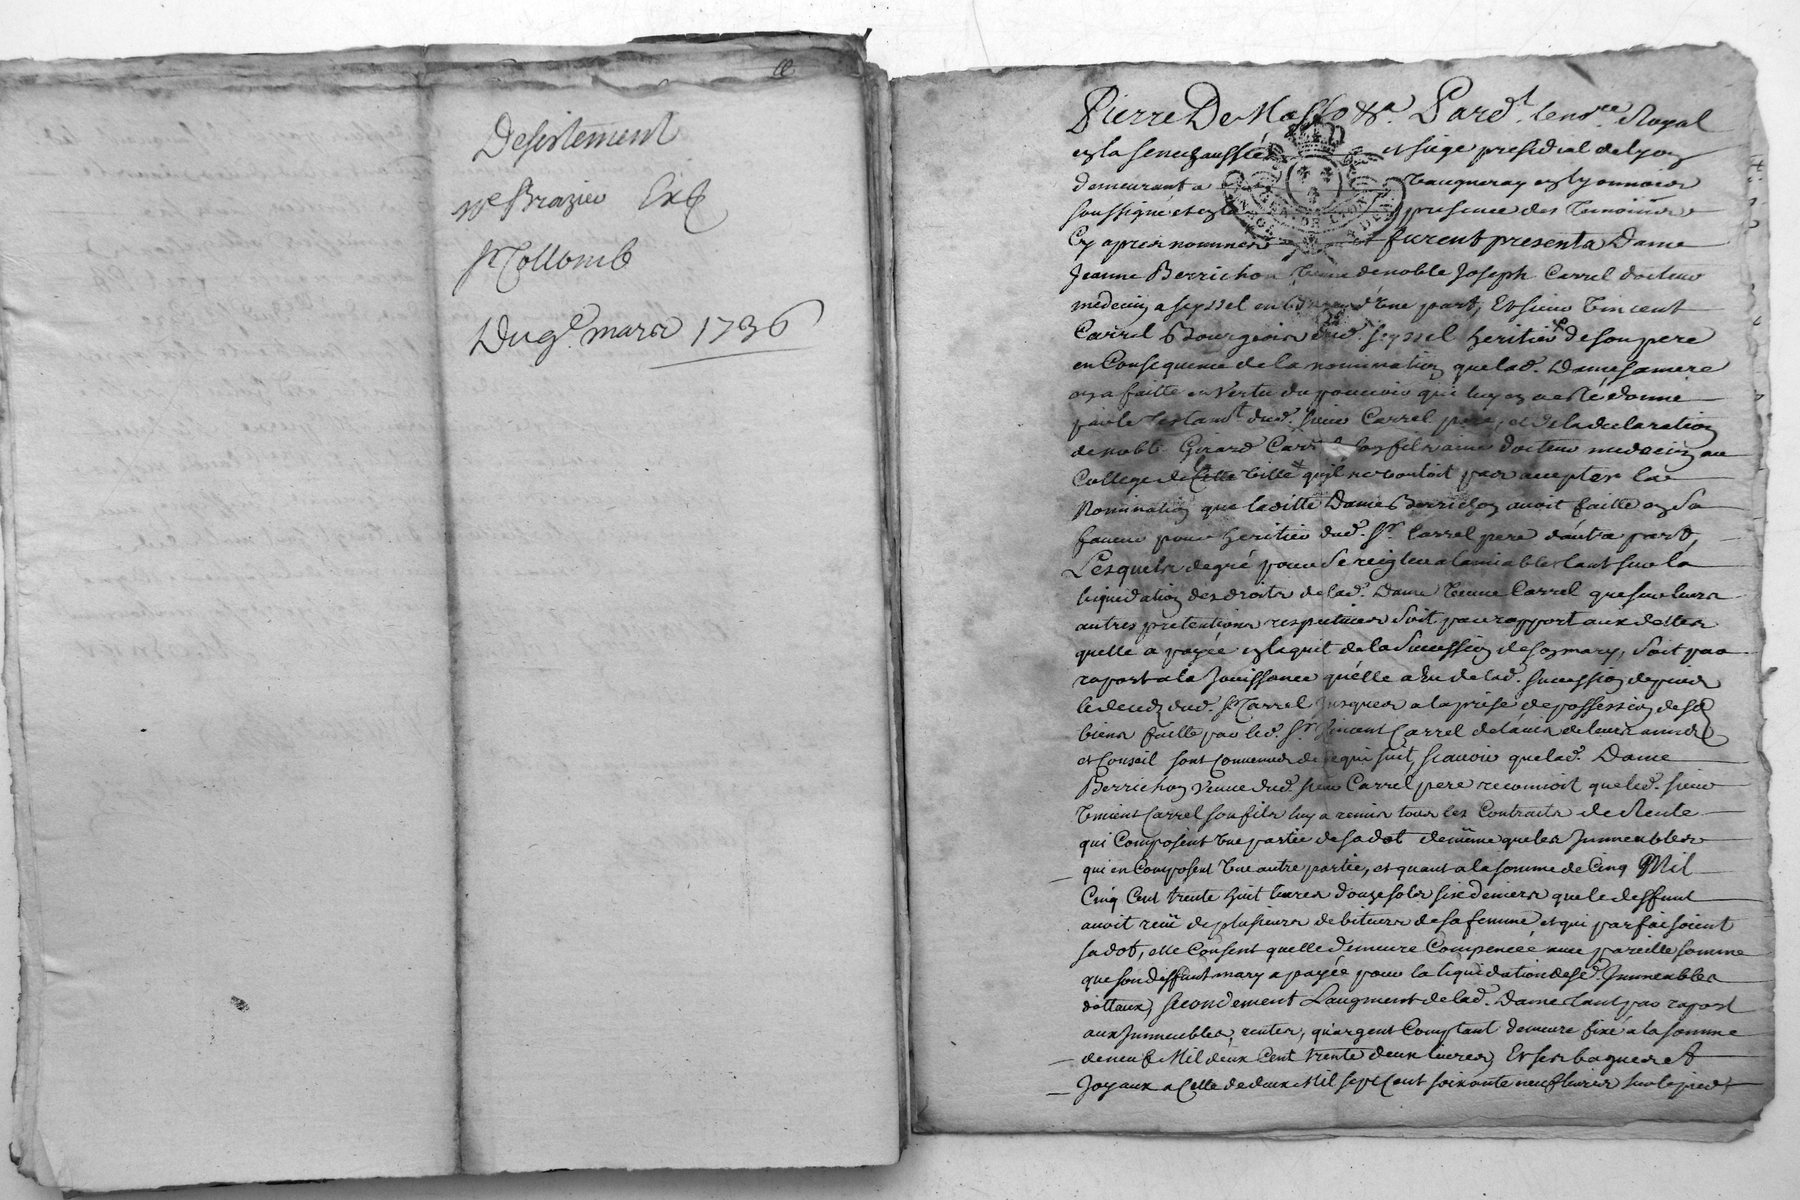 Desistement
Me Brazier Exp
Sr Collomb
Du 9e mars 1736
Pierre De Masso &a. Pard.t le nore Royal
en la senechaussée et siege presidial de Lyon
demeurant a Vaugneray en Lyonnois
soussigné et en presence des temoins
Cy apres nommes furent presents Dame
Jeanne Berrichon veuve de noble Joseph Carrel docteur
medecin a seyssel en d'Une part, Et sieur Vincent
Carrel Bourgeois dud. seyssel heritier de son pere
en Consequence de la nomination que lad. Dame sa mere
en a faitte en Vertu du pouvoir qui luy en a esté donné
par le testam.t dud. sieur Carrel pere, et de la declaration
de noble Girard Carrel son fils ainé docteur medecin au
College de Cette Ville qu'il ne vouloit pas accepter la
Nomination que laditte Dame Berrichon avoit faitte en Sa
faveur pour heritier dud. Sr. Carrel pere d'autre part,
Lesquels de gré pour se reigler a l'amiable tant sur la
liquidation des droits de lad. Dame Veuve Carrel que sur leurs
autres pretentions respectives soit par rapport aux dettes
quelle a payée en laquit de la Succession de son mary, soit par
raport a la Jouissance qu'elle a Eu de lad. succession depuis
le deces dud. Sr Carrel jusques a la prise de possession de ses
biens faitte par led. Sr. Vincent Carrel de l'avis de leurs amis
et Conseil sont Convenus de ce qui suit, scavoir que lad. Dame
Berrichon Veuve dud. sieur Carrel pere reconnoit que led. sieur
Vincent Carrel son fils luy a remis tous les Contrats de Rente
qui Composent Une partie de sa dot de même que les Immeubles
qui en Composent Une autre partie, et quant a la somme de Cinq Mil
Cinq Cent trente huit livres douze sols six deniers que le deffunt
avoit reçû de plusieurs debiteurs de sa femme et qui parfaisoient
sa dot, elle Consent quelle demeure Compencée avec pareille somme
que son deffunt mary a payée pour la liquidation desd. Immeubles
dottaux, secondement L'augment de lad. Dame tant par raport
aux Immeubles, rentes, qu'argent Comptant demeure fixé a la somme
de neuf Mil deux Cent trente deux livres, Et ses bagues et
Joyaux a Celle de deux Mil sept Cent soixante neuf livres sur le pied